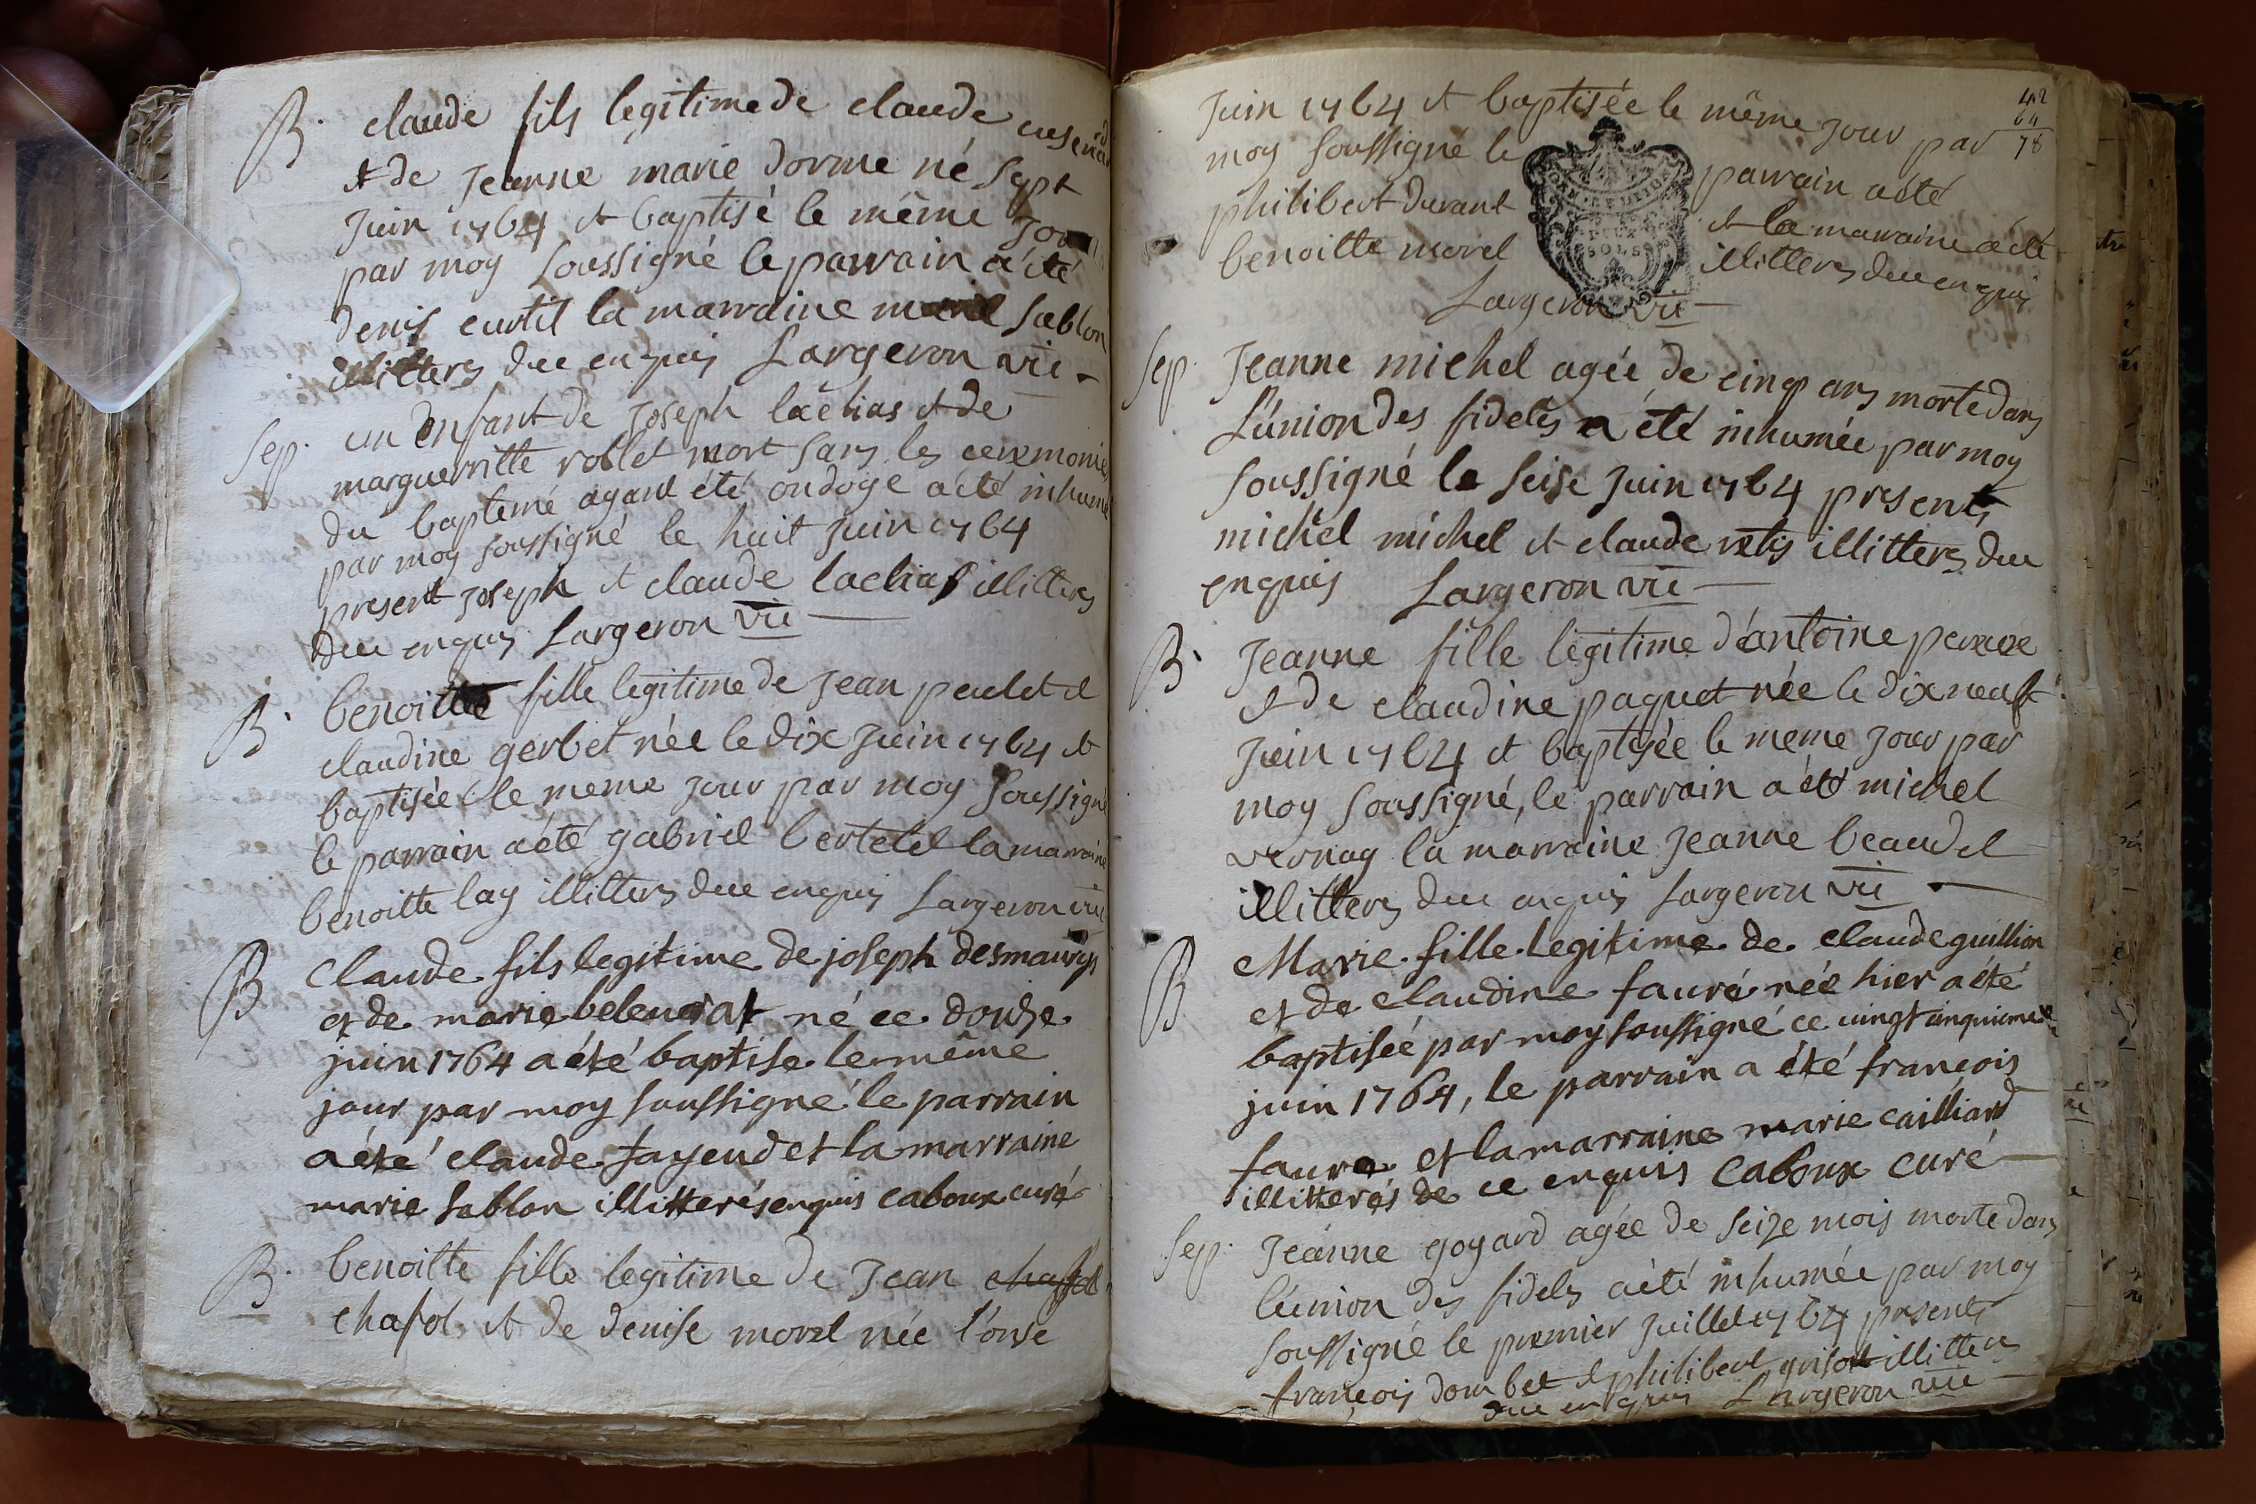 B. claude fils legitime de claude cusenad
& de Jeanne marie dorme né sept
Juin 1764 & baptisé le même Jour
par moy soussigné le parrain a été
denis curtil la marraine marie sablon
illitters de ce enquis Largeron vic
sep. un enfant de Joseph lachias & de
marguerritte roblet mort sans les ceremonies
du baptemé ayant été ondoyé a été inhumé
par moy soussigné le huit Juin 1764
present Joseph & claude lachias illitters
de ce enquis Largeron vic
B. benoitte fille legitime de Jean peulet &
claudine gerbet née le dix Juin 1764 &
baptisée le meme jour par moy soussigné
le parrain a été gabriel bertelet la marraine
benoitte lay illitters de ce enquis Largeron vic
B Claude fils legitime de joseph desmaurys
et de marie belenorat né ce douze
juin 1764 a été baptise le même
jour par moy soussigné le parrain
a été claude fayend et la marraine
marie sablon illitterés enquis caboux curé
B. benoitte fille legitime de Jean chaffot
chafot & de denise morel née l'onse
42
64
78
Juin 1764 & baptisée le même jour par
moy soussigné le parrain a été
philibert durant & la marraine a été
benoitte morel illitters de ce enquis
DEUX
SOLS
Largeron vic
sep. Jeanne michel agée de cinq ans morte dans
L'union des fideles a été inhumée par moy
soussigné le seise Juin 1764 presents
michel michel & claude retis illitters de ce
enquis Largeron vic
B. Jeanne fille legitime d'antoine perrere
& de claudine paquet née le dix neuf
Juin 1764 & baptisée le meme jour par
moy soussigné, le parrain a été michel
vernay la marraine Jeanne beaudet
illitters de ce enquis Largeron vic
B Marie fille legitime de claude guillion
et de claudine fauré née hier a été
baptisée par moy soussigné ce vingt cinquieme
juin 1764, le parrain a été françois
faure et la marraine marie cailliard
illitterés de ce enquis Caboux curé
sep. Jeanne goyard agée de seize mois morte dans
l'union des fideles a été inhumée par moy
soussigné le premier Juillet 1764 presents
françois dombet & philibert grison illitters
de ce enquis Largeron vic